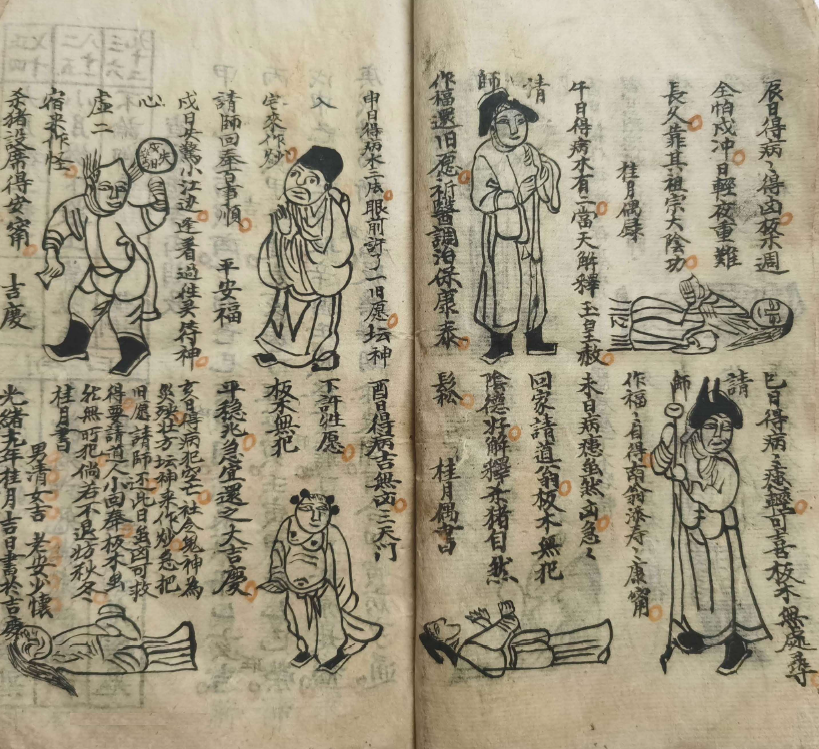 辰日得病病得凶板木週
全怕戌冲日輕夜重難
長久靠其祖宗大陰功
桂月偶録
午日得病木有二當天解釋玉皇赦
請
師
作福還旧愿祈醫調治保康泰
巳日得病主痰輕可喜板木無處尋
請
師
作福福自得南翁添寿寿康寧
未日病穂虽然凶急急
回家請道翁板木無犯
陰德好解釋禾猪自然
鬆松
桂月偶書
申日得病木二底眼前許了一旧愿坛神
宅來作炒
請師回奉百事順
平安福
戌日失驚小江边逢着過往关待神
心
虚二
宿来作怪
杀猪設席得安寧
吉慶
酉日得病吉無凶三天門
下許牲愿
板木無犯
平穏兆急宜還之大吉慶
亥日得病犯空亡社令鬼神為
災殃北方坛神来作炒急把
旧愿請師还此日虽凶可救
得要請道人小回奉板木虽
然無可犯倘若不退妨秋冬
桂月書
男清女吉
老安少懷
光緒九年桂月吉日書於吉慶